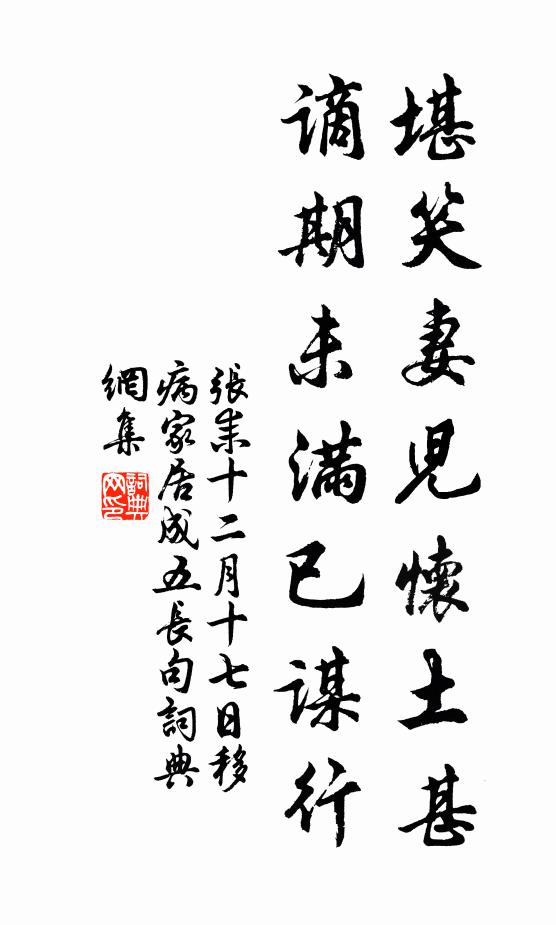 堪笑妻児懷土甚
謫期未滿已謀行
張耒十二月十七日移
病家居成五長句詞典
網集
詞典
网印